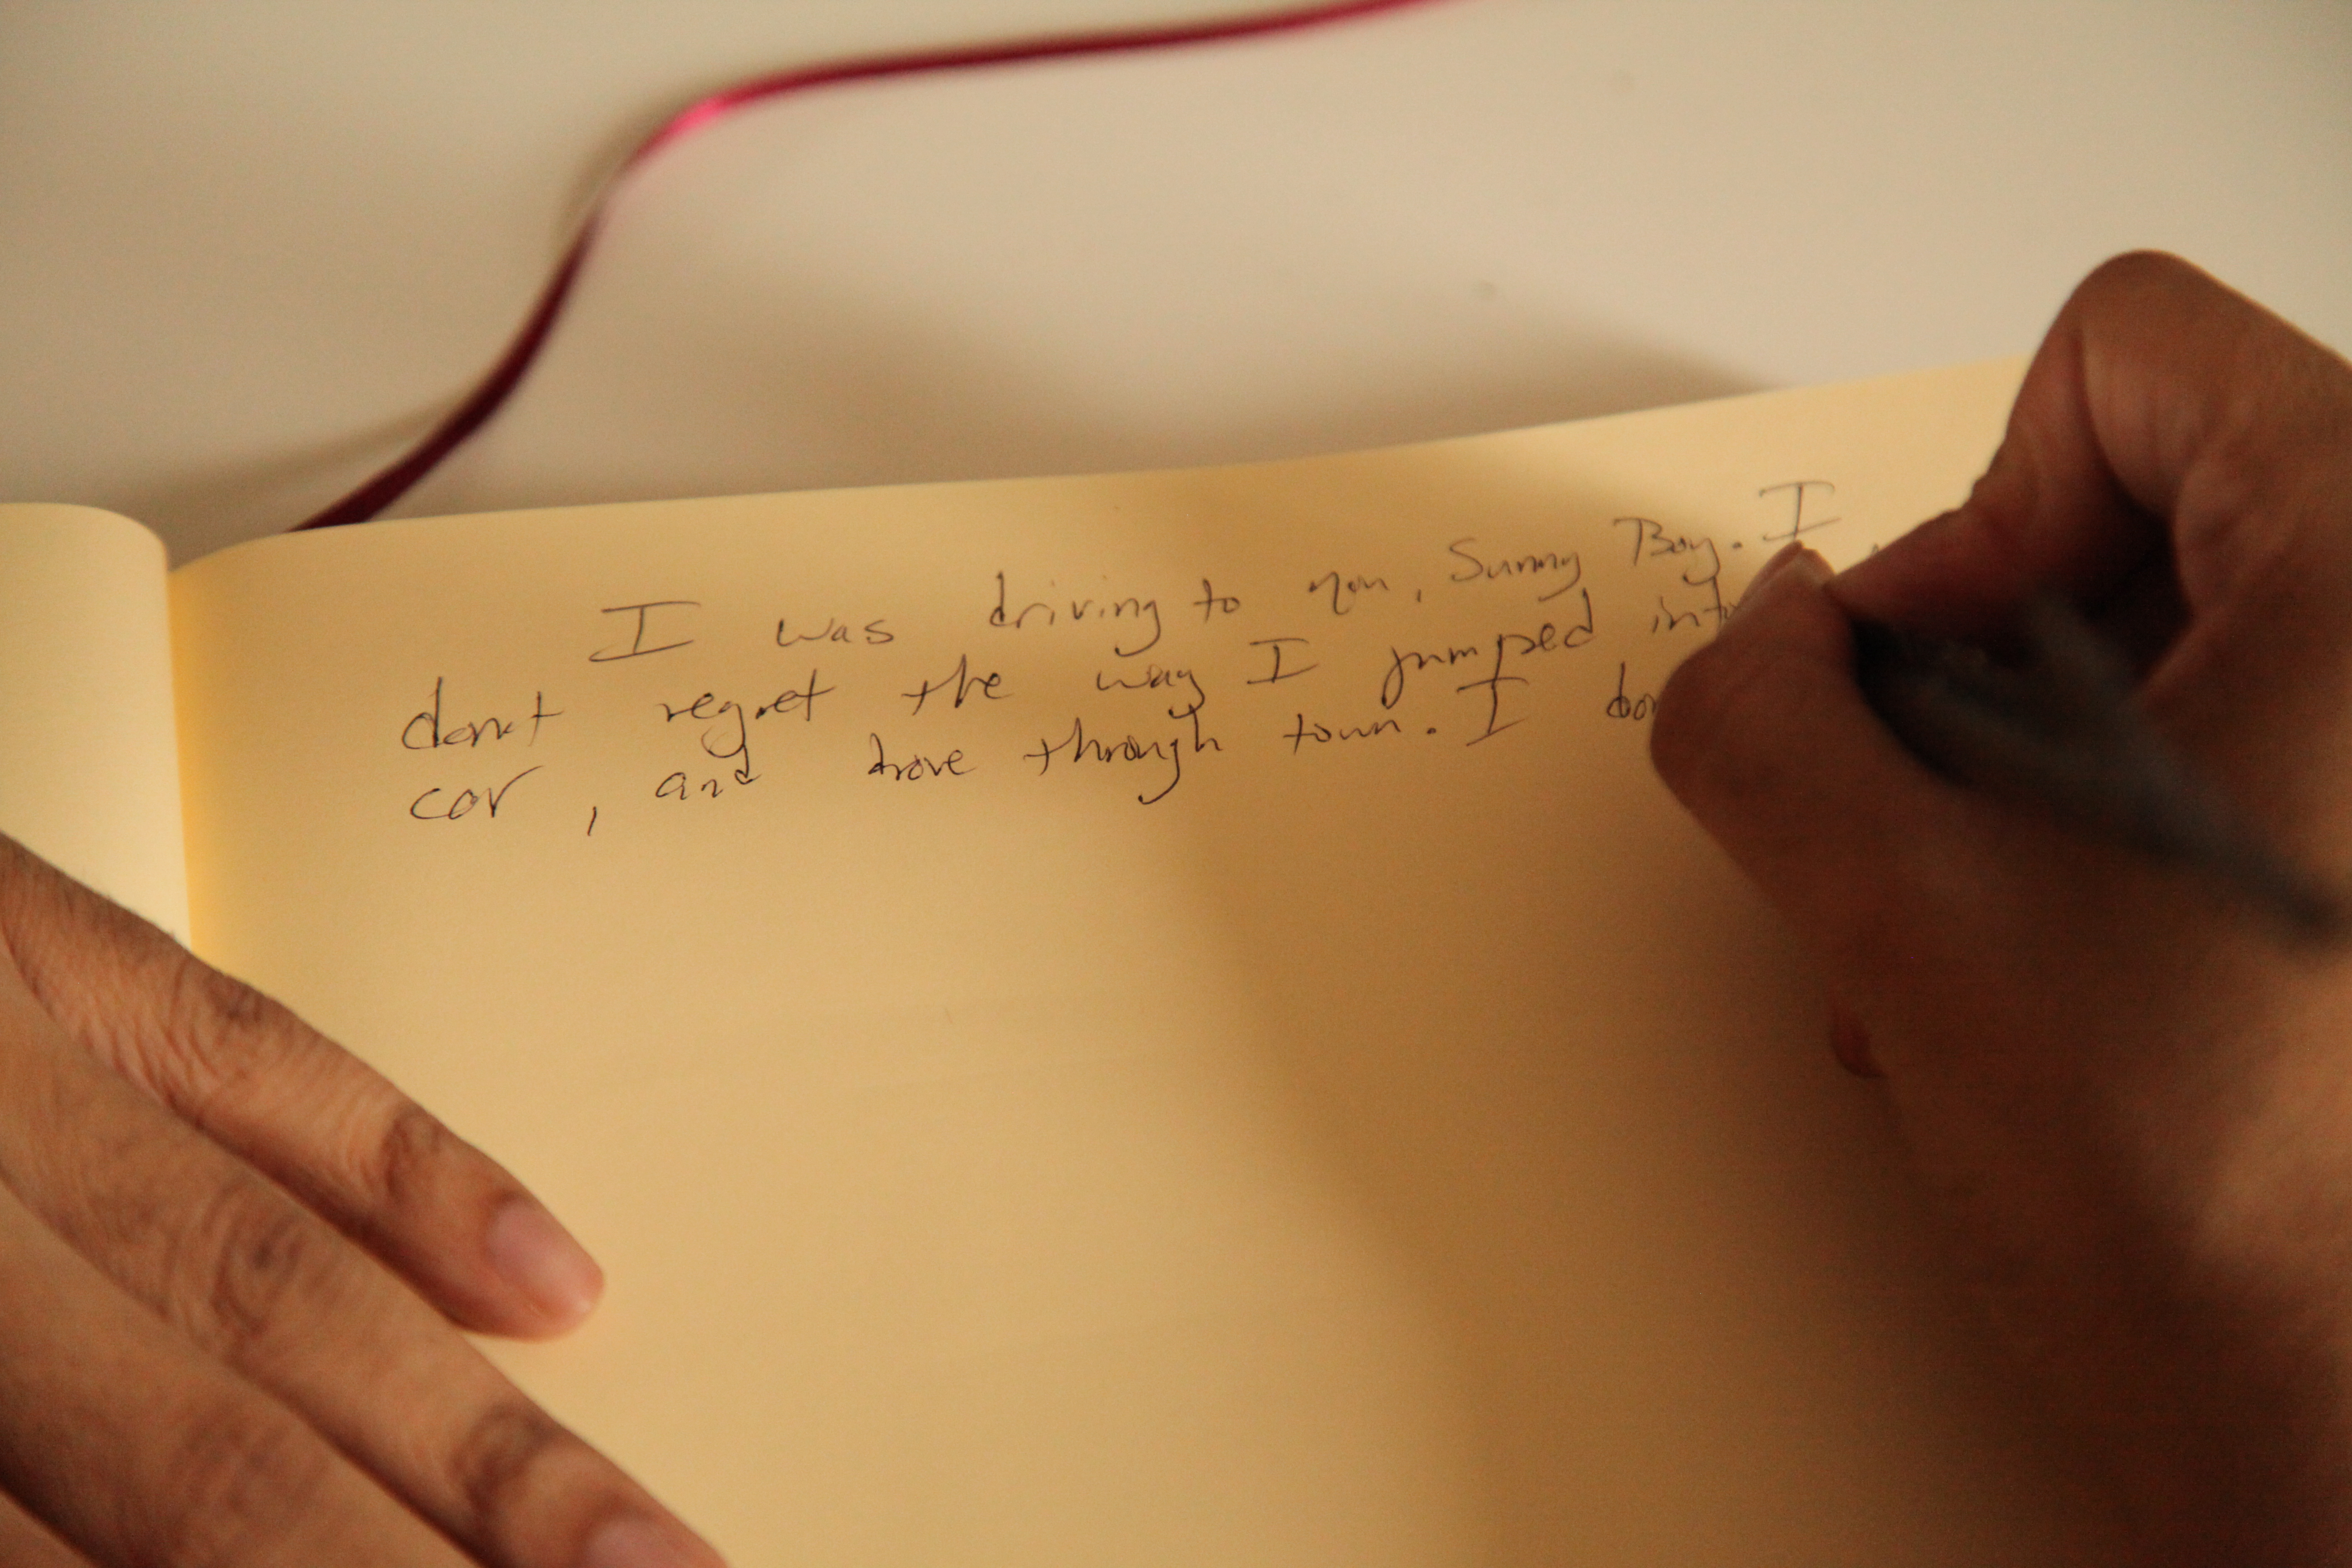 I was driving to you, Sunny Boy. I
don't regret the way I jumped into
car, and drove through town. I don